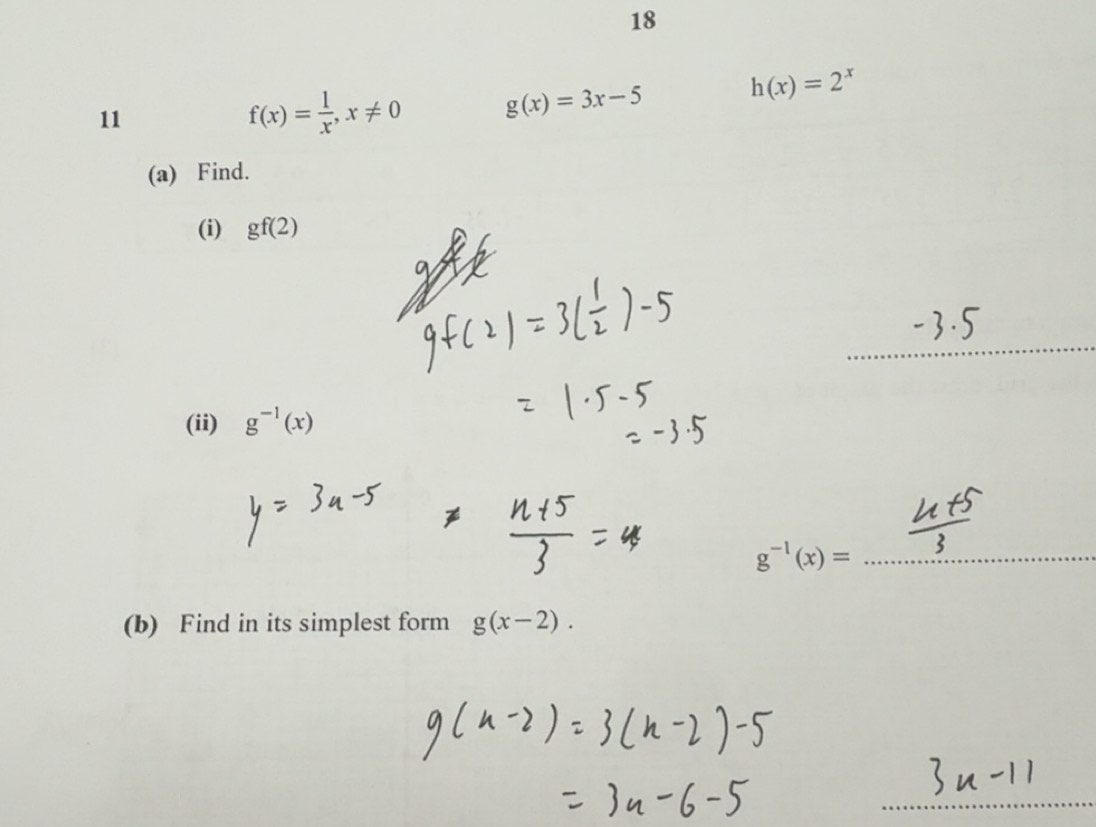 18
11 f(x) = 1/x, x ≠ 0 g(x) = 3x − 5 h(x) = 2^x
(a) Find.
(i) gf(2)
gf(2) = 3(1/2) - 5
-3.5
= 1.5 - 5
(ii) g⁻¹(x)
= -3.5
y = 3x - 5
(x + 5)/3 =
g⁻¹(x) = (x + 5)/3
(b) Find in its simplest form g(x − 2) .
g(x - 2) = 3(x - 2) - 5
= 3x - 6 - 5
3x - 11